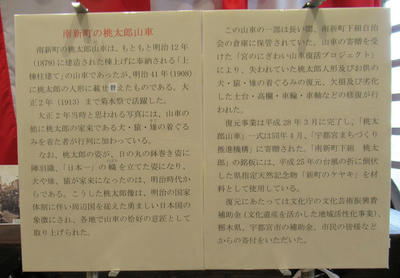 南新町の桃太郎山車
南新町の桃太郎山車は、もともと明治12年
(1879)に建造された棟上げに奉納される「上
棟柱建て」の山車であったが、明治41年(1908)
に桃太郎の人形に載せ替えたものである。大
正2年(1913)まで菊水祭で活躍した。
大正2年当時と思われる写真には、山車の
他に桃太郎の家来である犬・猿・雉の着ぐる
みを着た者が行列に加わっている。
なお、桃太郎の姿が、日の丸の鉢巻き姿に
陣羽織、「日本一」の幟を立てた姿になり、
犬や猿、雉が家来になったのは、明治時代か
らである。こうした桃太郎像は、明治の国家
体制に伴い周辺国を従えた勇ましい日本国の
象徴にされ、各地で山車の恰好の意匠として
取り上げられた。
この山車の一部は長い間、南新町下組自治
会の倉庫に保管されていた。山車の寄贈を受
けた「宮のにぎわい山車復活プロジェクト」
により、失われていた桃太郎人形及びお供の
犬・猿・雉の着ぐるみの復元、欠損及び劣化
した土台・高欄・車輪・車軸などの修復が行わ
れた。
復元事業は平成28年3月に完了し、「桃太
郎山車」一式は同年4月、「宇都宮まちづくり
推進機構」に寄贈された。「南新町下組 桃太
郎」の銘板には、平成25年の台風の折に倒伏
した県指定天然記念物「新町のケヤキ」を材
料として使用している。
復元にあたっては文化庁の文化芸術振興費
補助金(文化遺産を活かした地域活性化事業)、
栃木県、宇都宮市の補助金、市民の皆様など
からの寄付をいただいた。